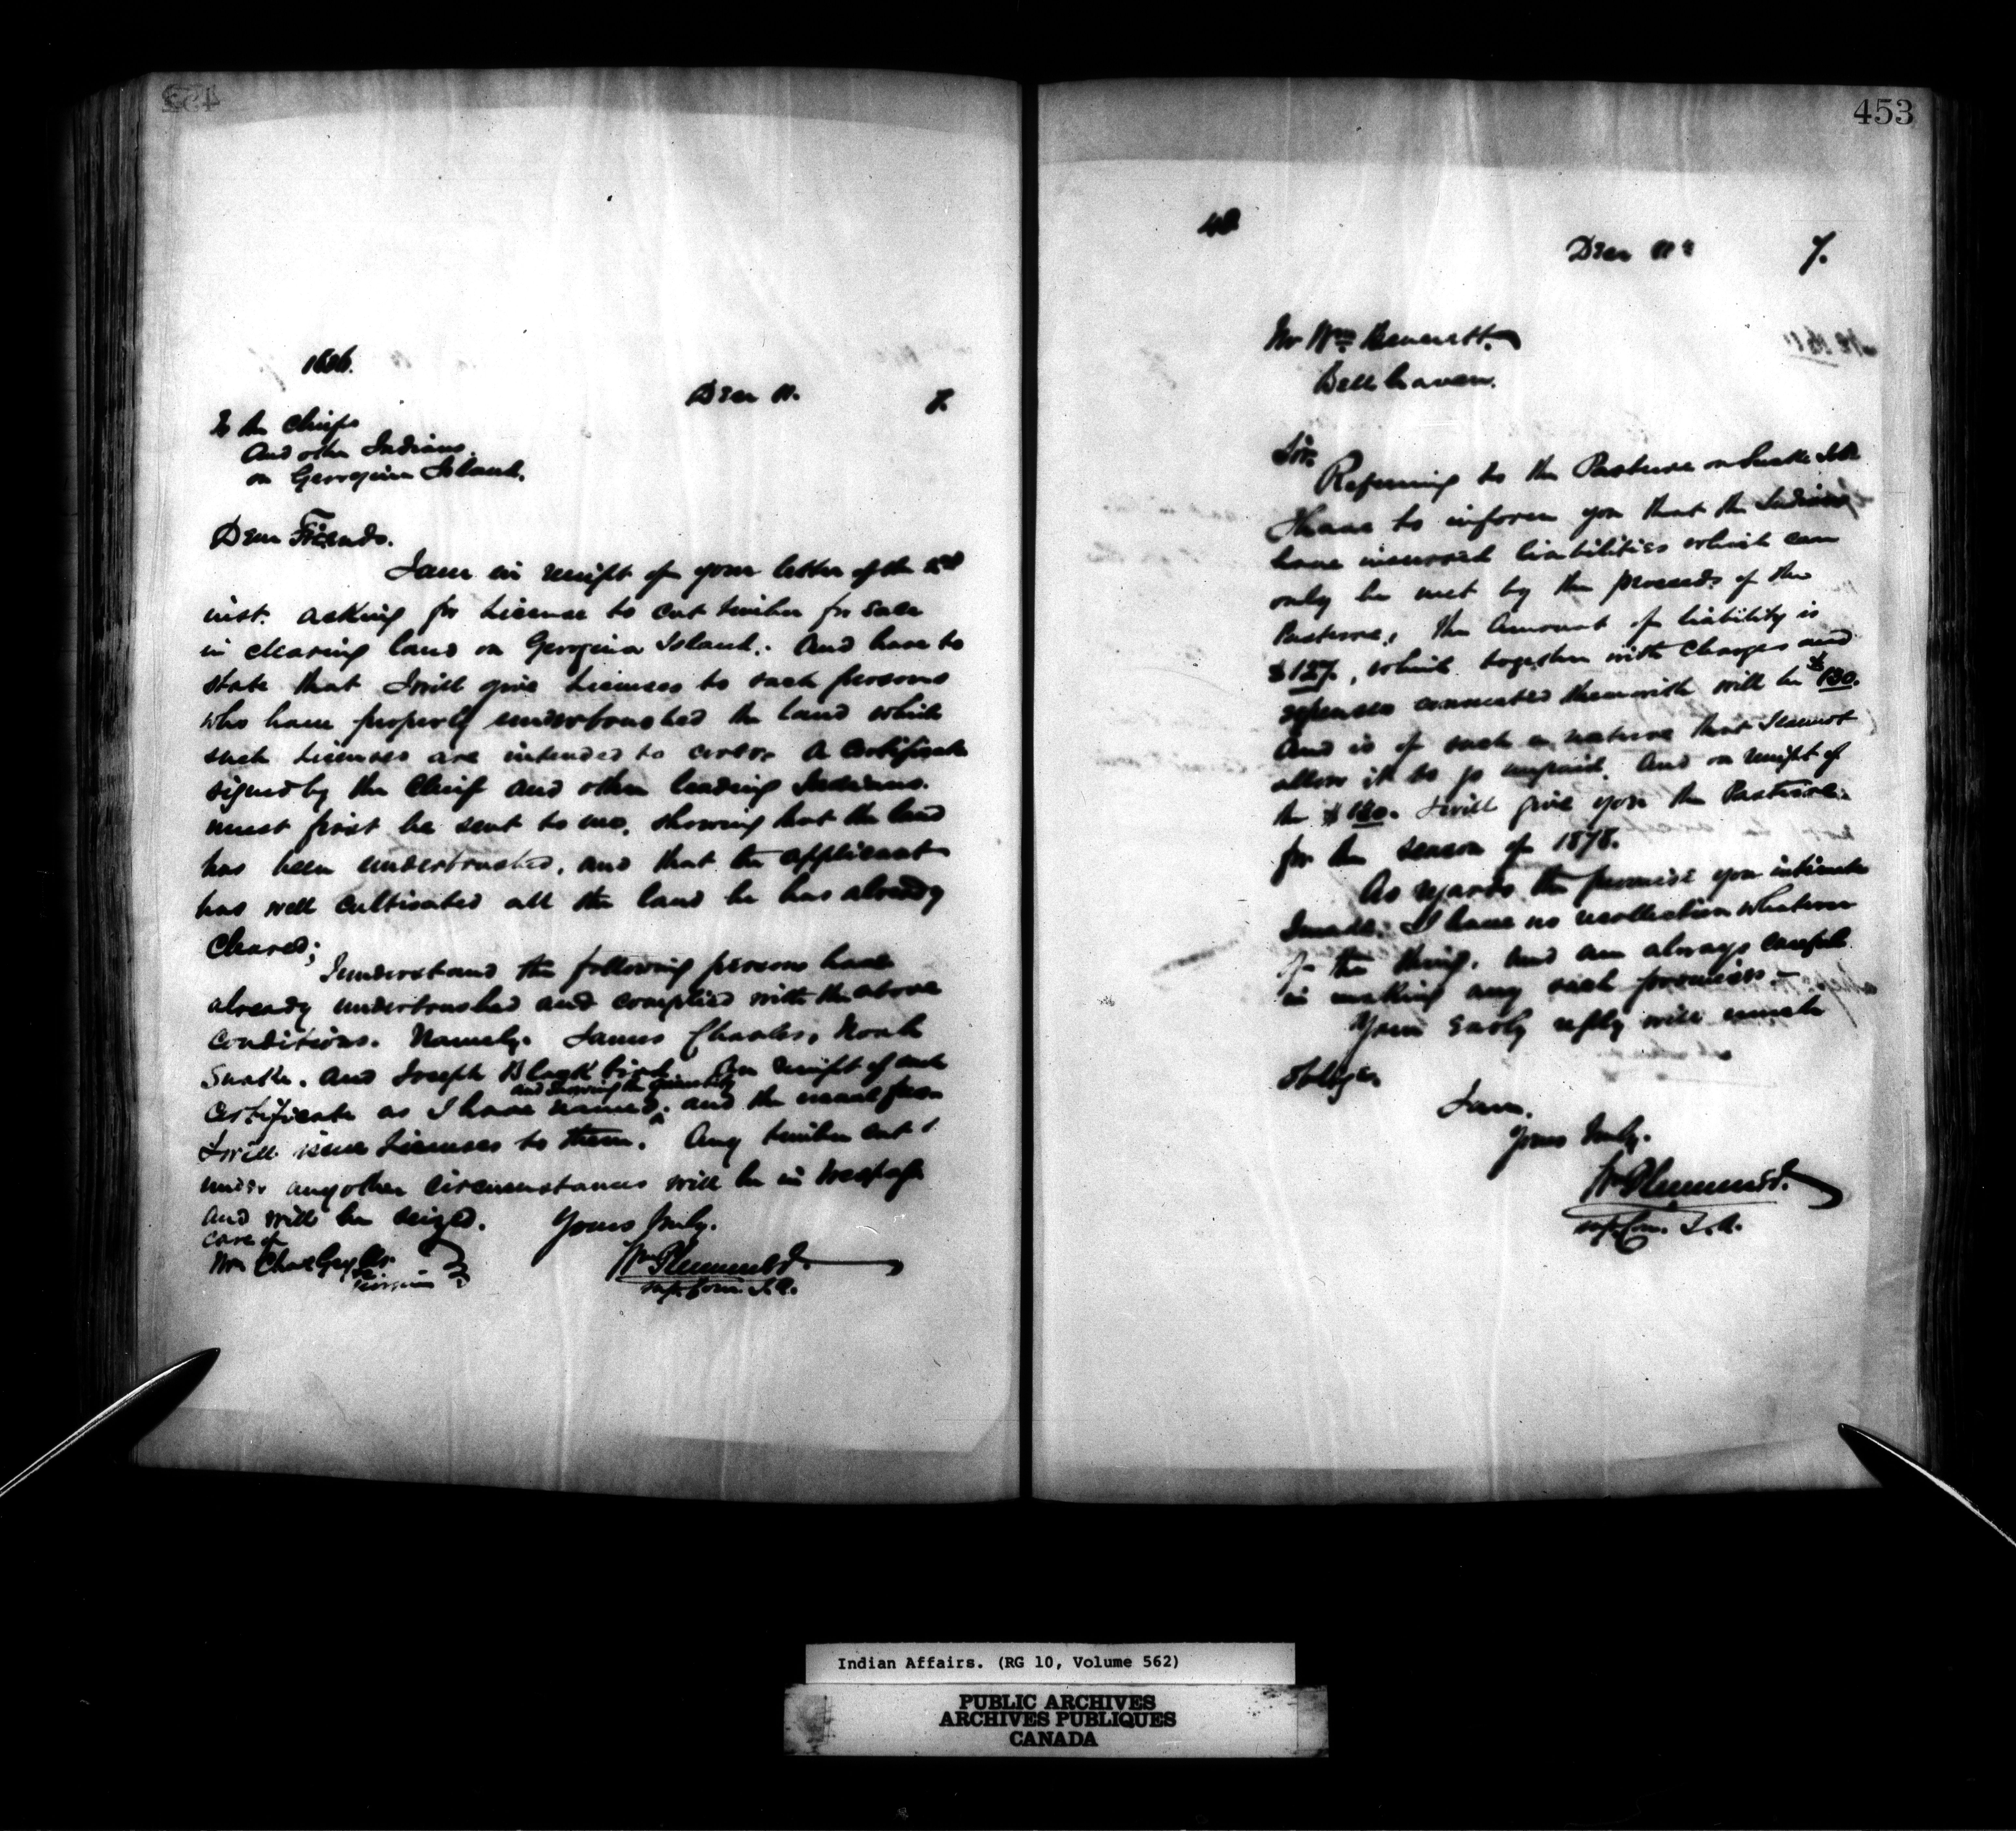 1606.
Dec 11. 7.
To the Chiefs
And other Indians
on Georgina Island.
Dear Friends.
I am in receipt of your letter of the
inst. asking for License to cut timber for Sale
in clearing land on Georgina Island. And have to
state that I will give Licenses to such persons
who have properly underbrushed the land which
such Licenses are intended to cover. A Certificate
signed by the Chief and other leading Indians.
must first be sent to me, showing that the land
has been underbrushed, and that the applicant
has well cultivated all the land he has already
Cleared;
I understand the following persons have
already underbrushed and complied with the above
conditions. Namely. James Charles, Noah
Snake. and Joseph Blackbird. On receipt of such
and showing the quantity
Certificate as I have named, and the usual fees
I will issue Licenses to them. Any timber cut
under any other circumstances will be in trespass
and will be seized. Yours truly.
care of
Mr Chas
Wm Plummer
Supt. Com. I.A.
453
Dec 11th 7.
Mr Wm Bennett.
Bellhaven.
Sir.
Referring to the Pasture on Snake Isld
I have to inform you that the Indians
have incurred liabilities which can
only be met by the proceeds of the
Pasture, the Amount of liability is
$127, which together with Charges and
expenses connected therewith will be $130.
And is of such a nature that I cannot
allow it to go unpaid. And on receipt of
the $130. I will give you the Pasture.
for the season of 1878.
As regards the promise you intimate
I made. I have no recollection whatever
of the thing, and am always careful
in making any such promises.
Your early reply will much
oblige.
I am.
Yours truly.
Wm Plummer
Supt. Com. I.A.
Indian Affairs. (RG 10, Volume 562)
PUBLIC ARCHIVES
ARCHIVES PUBLIQUES
CANADA